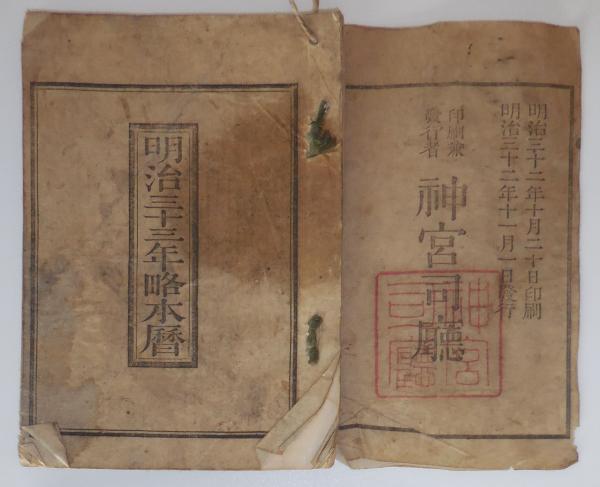 明治三十三年略本曆
明治三十二年十月二十日印刷
明治三十二年十一月一日發行
印刷兼
發行者
神宮司廳
神宮
司廳